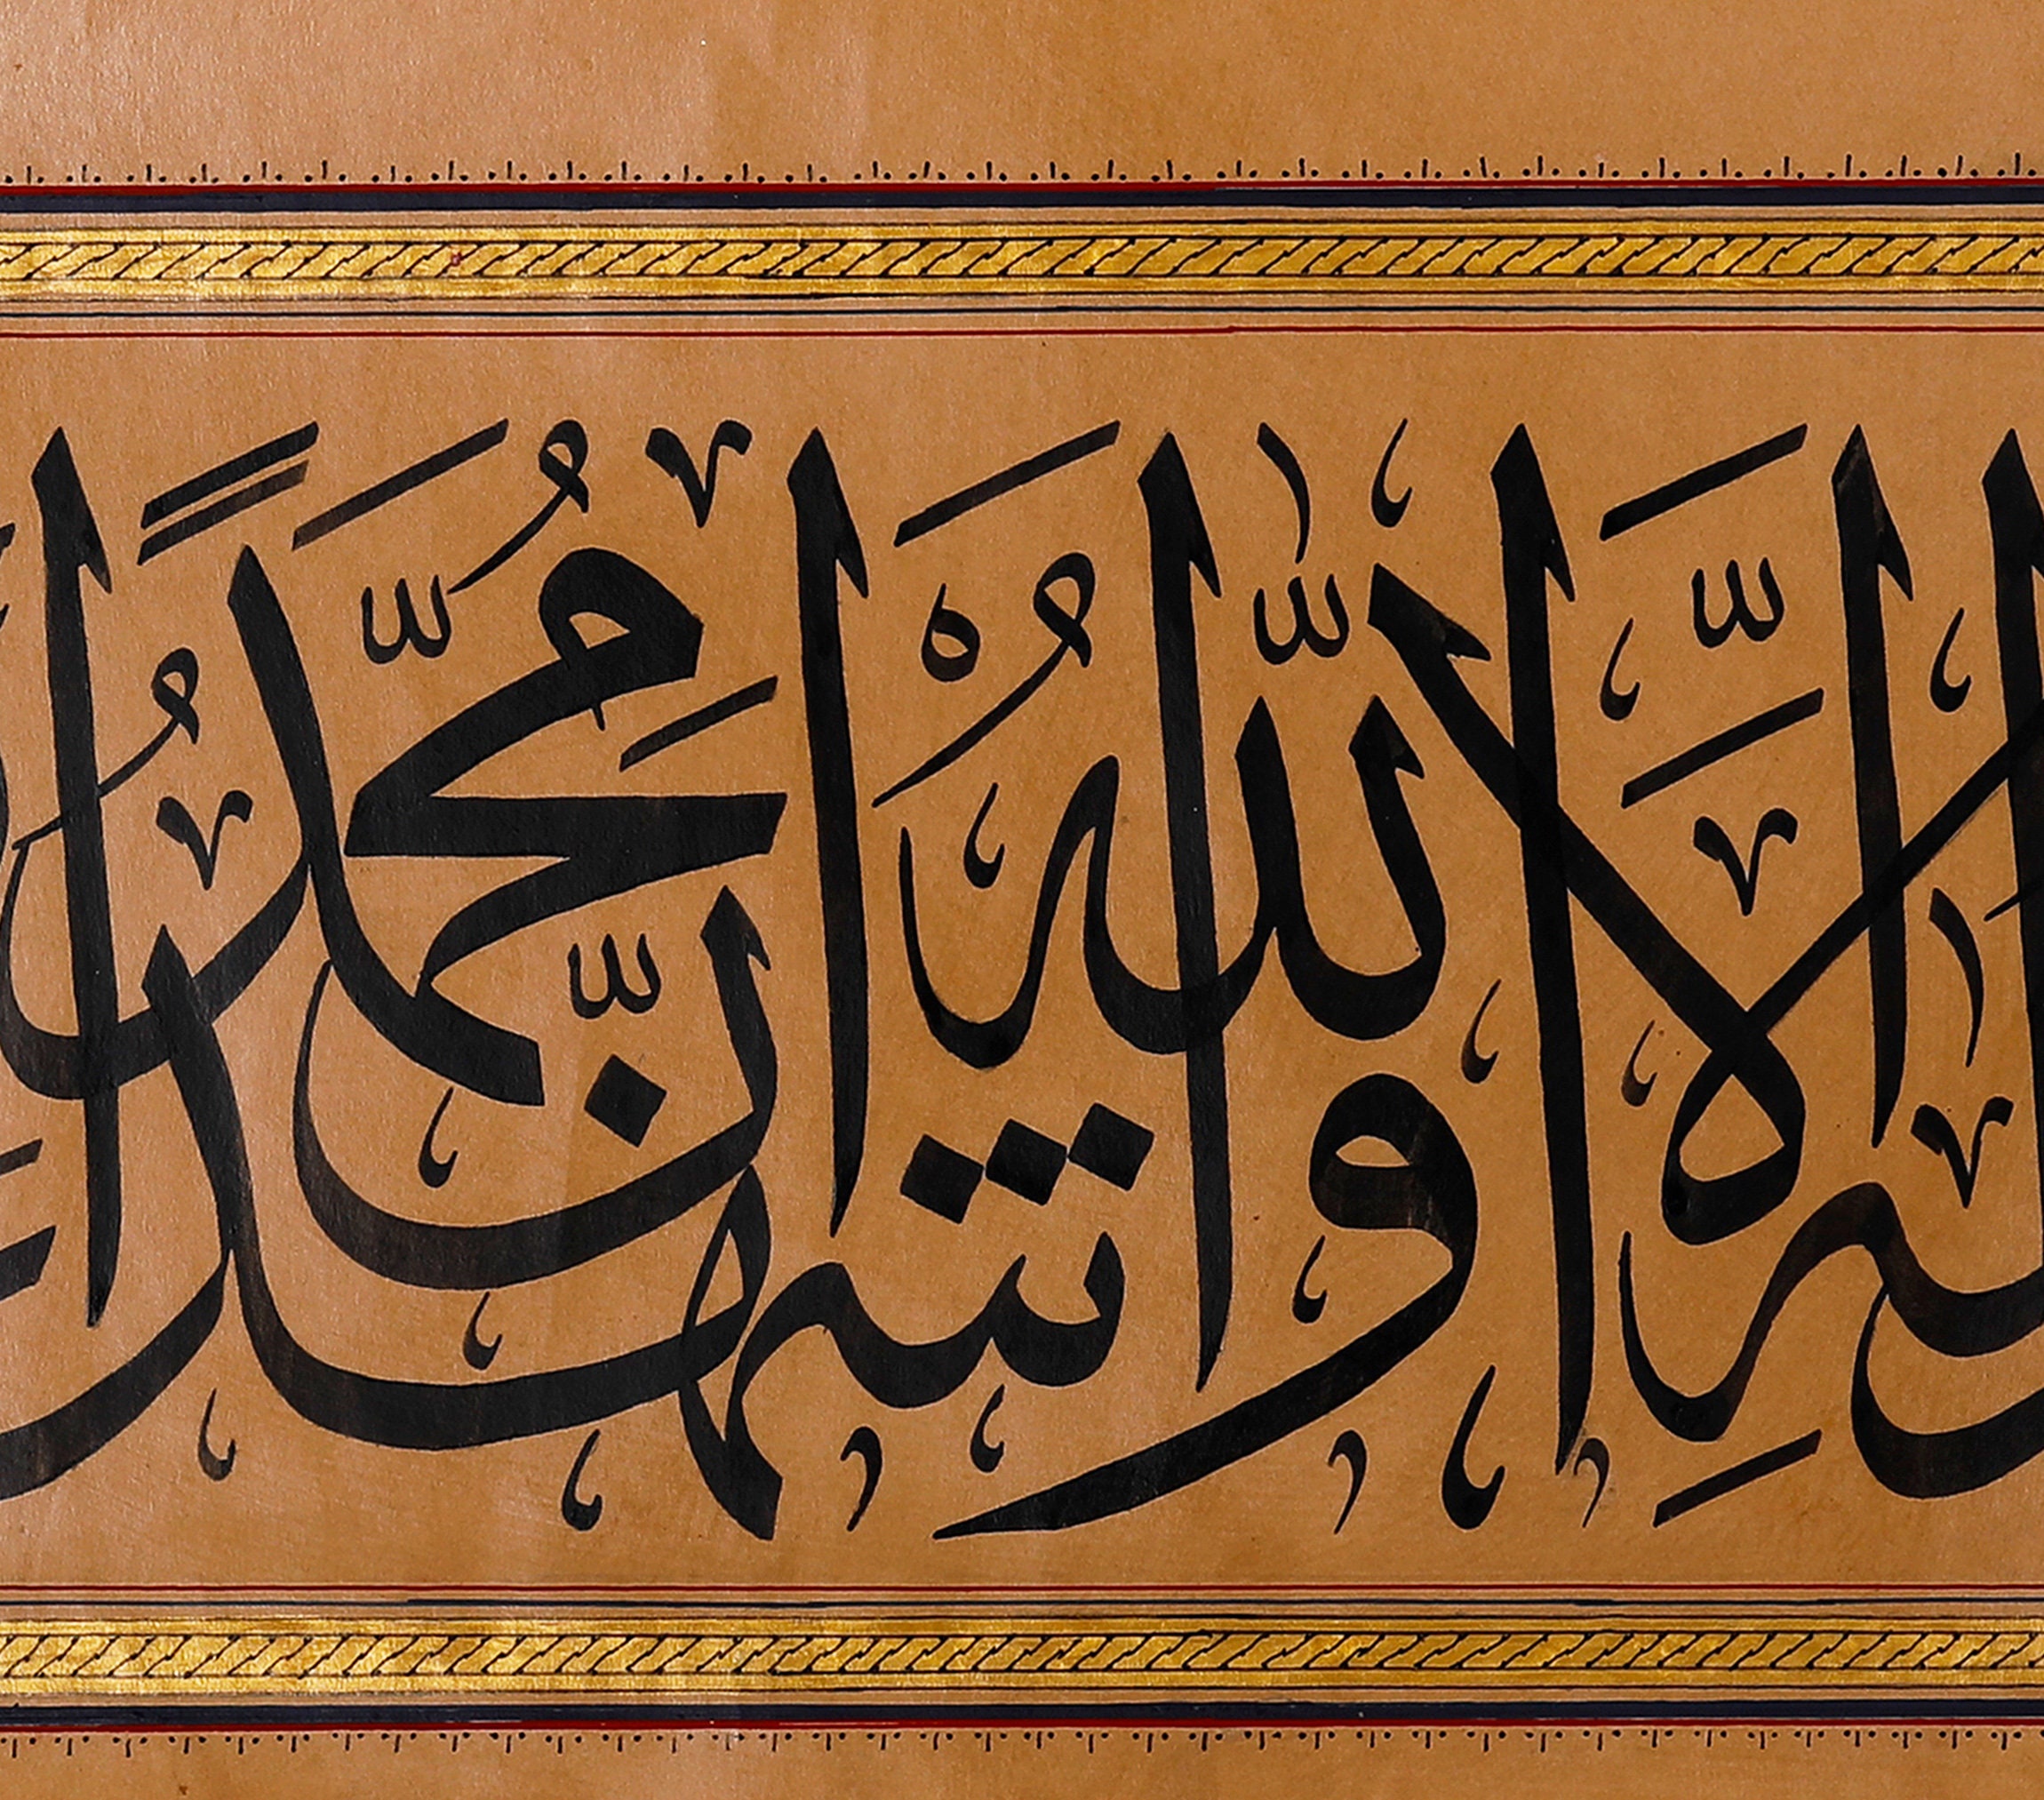 إِلٰهَ إِلَّا اللّٰهُ وَاَشْهَدُ اَنَّ مُحَمَّدًا